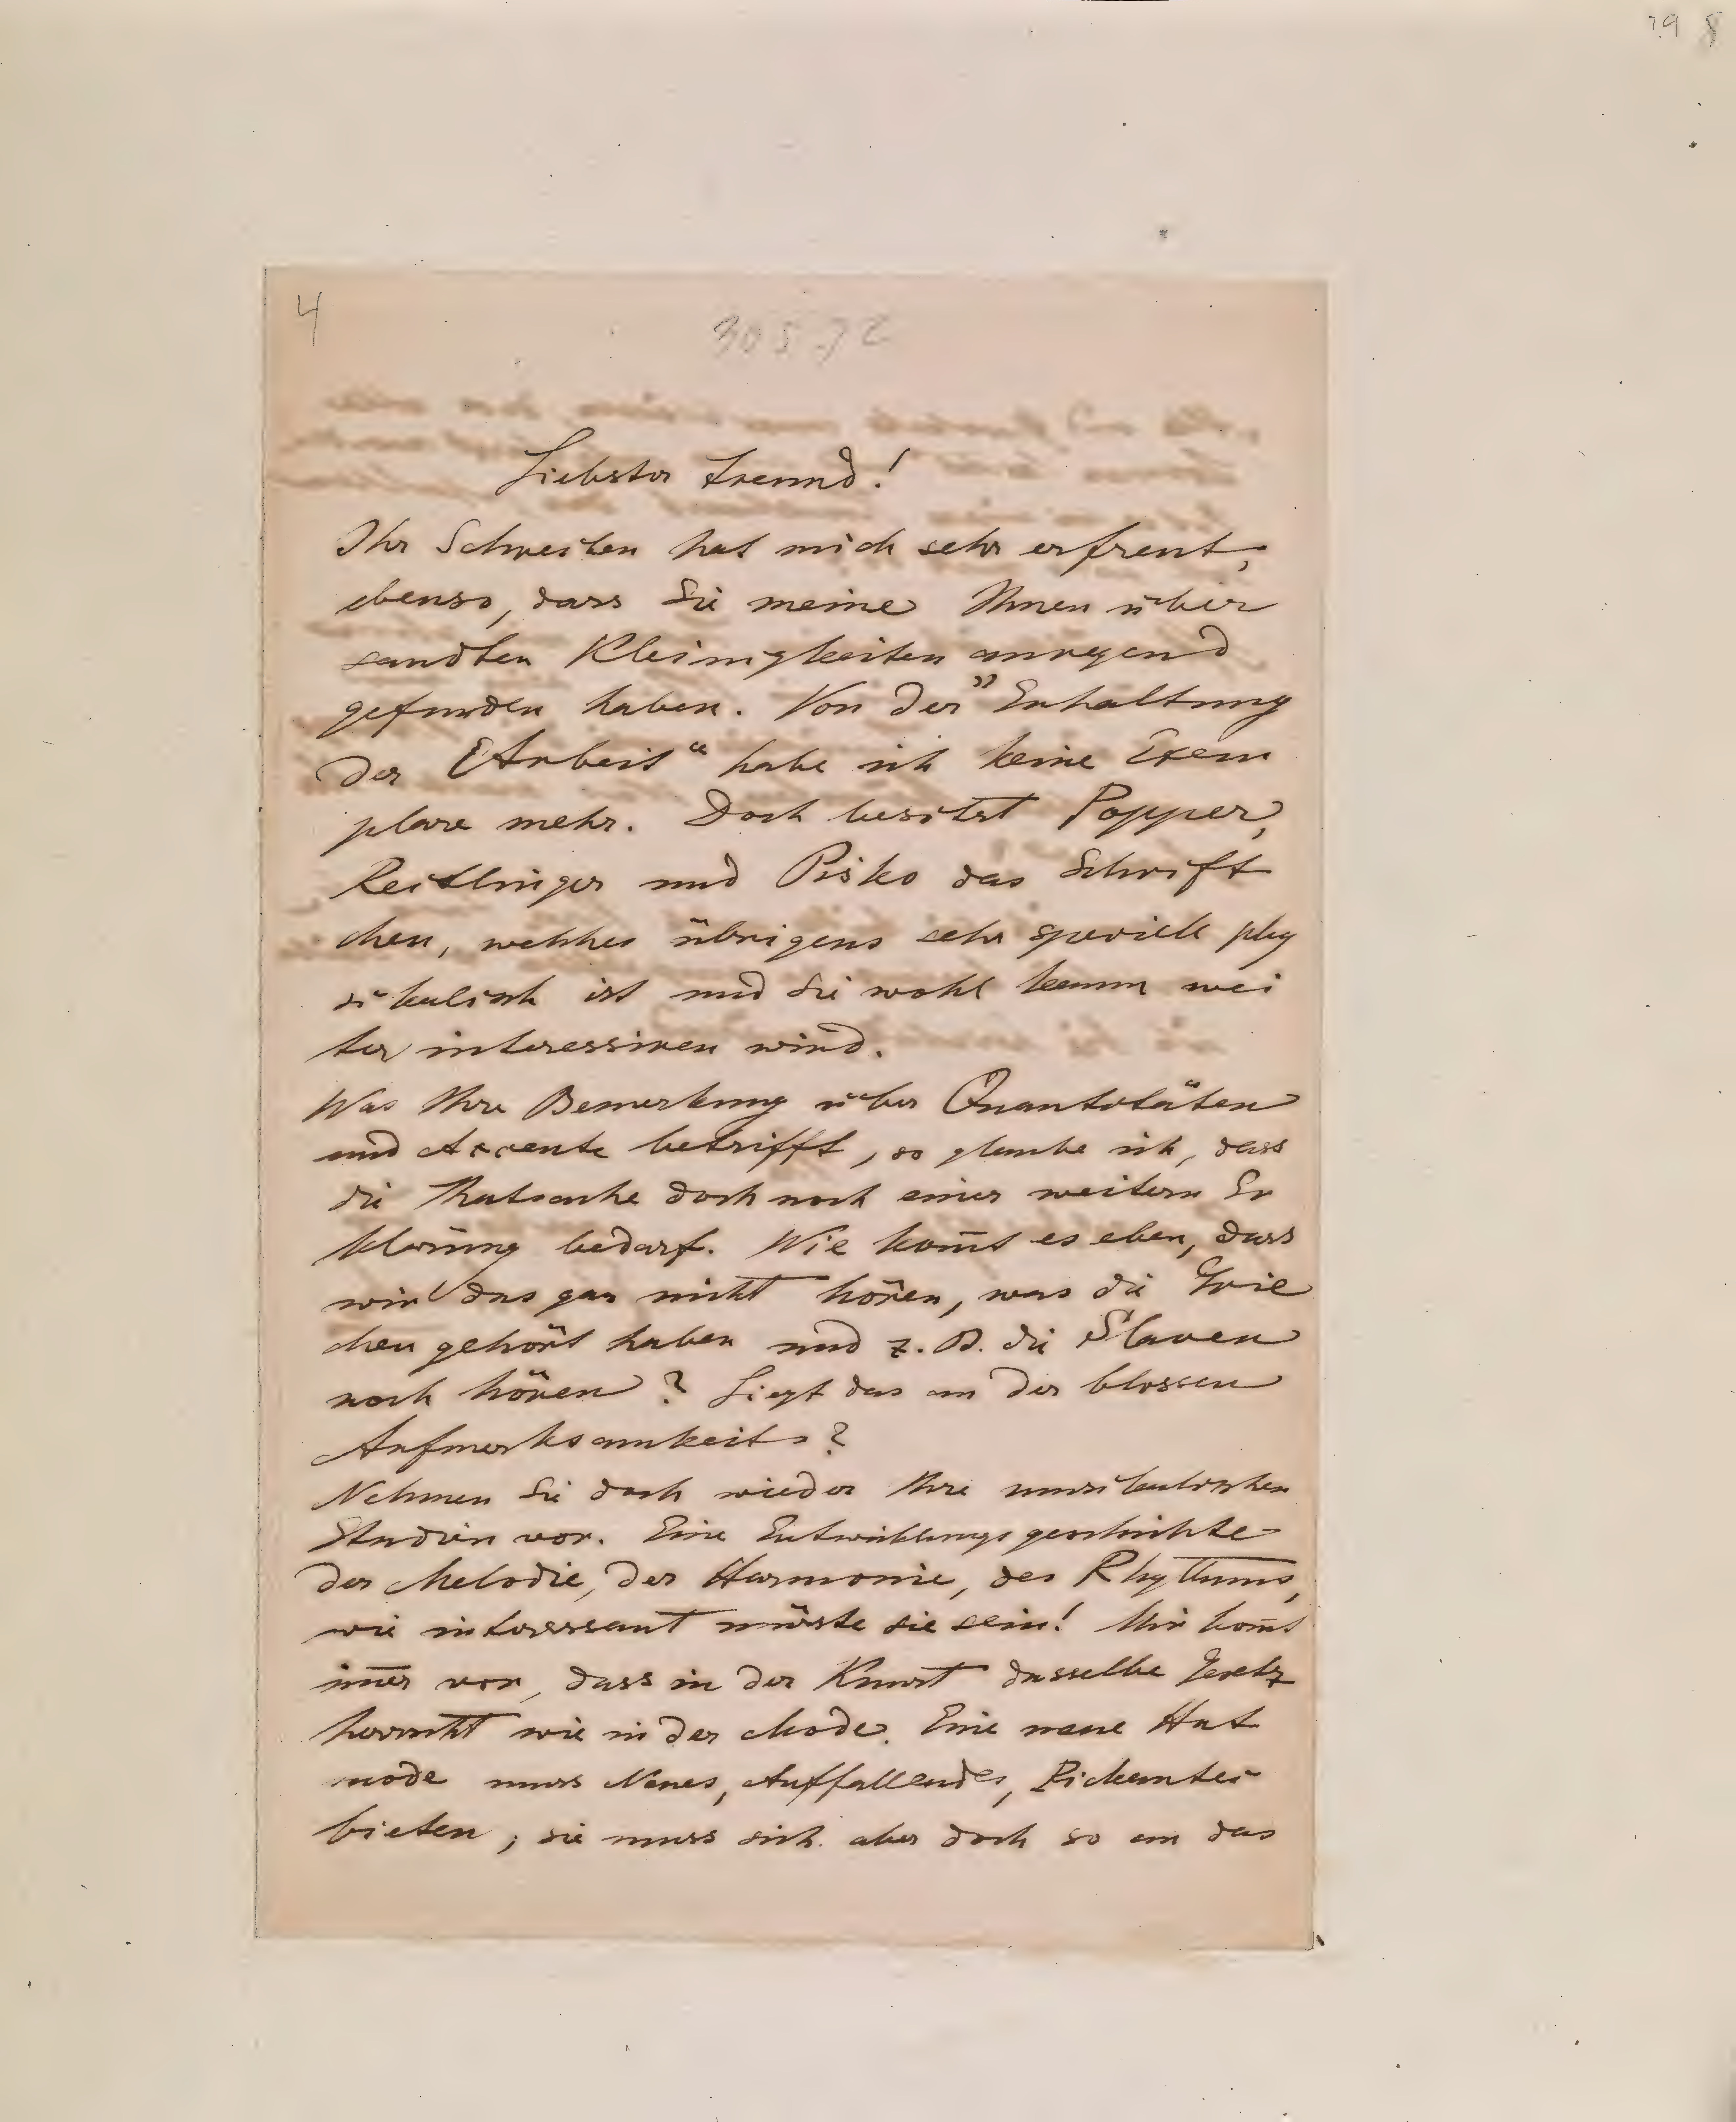 79 8
4
30 5 72
Liebster Freund!
Ihr Schreiben hat mich sehr erfreut;
ebenso, dass Sie meine Ihnen über
sandten Kleinigkeiten anregend
gefunden haben. Von der „Erhaltung
der Arbeit“ habe ich keine Exem
plare mehr. Doch besitzt Popper,
Reitlinger und Pisko das Schrift
chen, welches übrigens sehr speciell phy
sikalisch ist und Sie wohl kaum wei
ter interessiren wird.
Was Ihre Bemerkung über Quantitäten
und Accente betrifft, so glaube ich, dass
die Thatsache doch noch einer weitern Er
klärung bedarf. Wie kom̄t es eben, dass
wir das gar nicht hören, was die Grie
chen gehört haben und z. B. die Slaven
noch hören? Liegt das an der blossen
Aufmerksamkeit?
Nehmen Sie doch wieder Ihre musikalischen
Studien vor. Eine Entwicklungsgeschichte
der Melodie, der Harmonie, des Rhythmus,
wie interessant müsste sie sein! Mir kom̄t
im̄er vor, dass in der Kunst dasselbe Gesetz
herrscht wie in der Mode. Eine neue Hut
mode muss Neues, Auffallendes, Pickantes
bieten; sie muss sich aber doch so an das